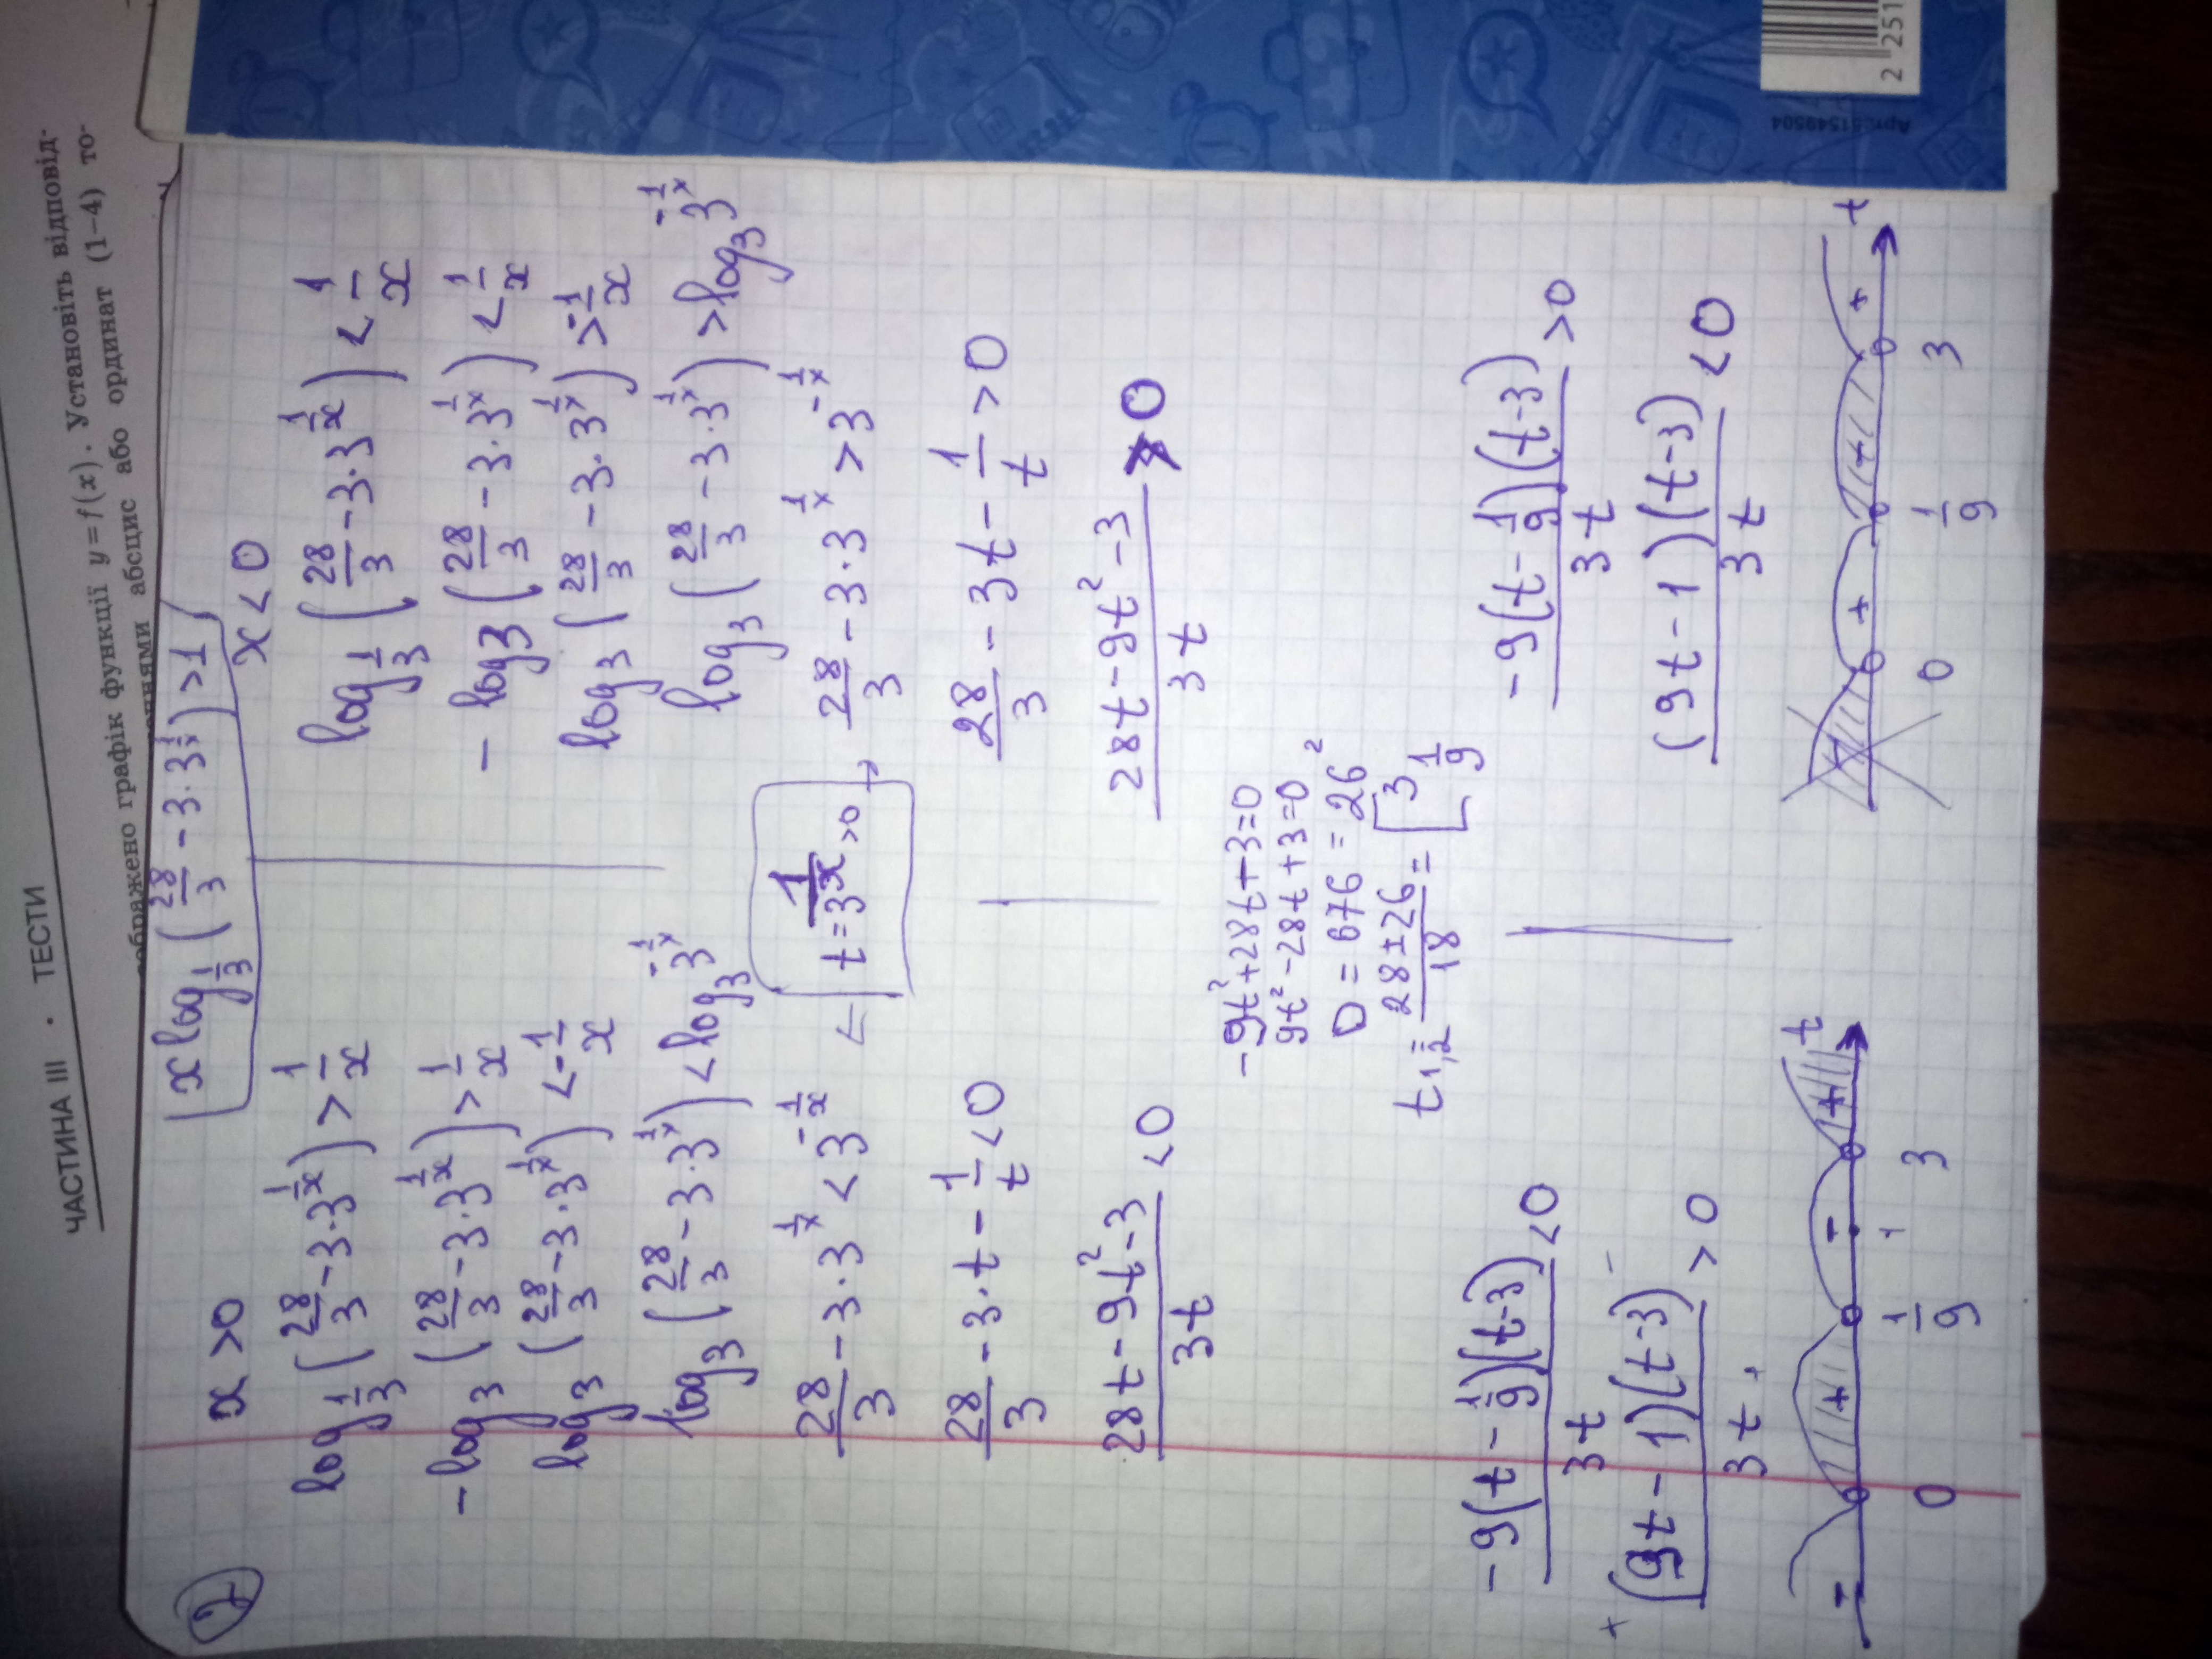 ЧАСТИНА III · ТЕСТИ
зображено графік функції y=f(x). Установіть відповід-
абсцис або ординат (1–4) то-
2
x log_{1/3} (28/3 - 3·3^{1/x}) > 1
x > 0
log_{1/3} (28/3 - 3·3^{1/x}) > 1/x
-log_3 (28/3 - 3·3^{1/x}) > 1/x
log_3 (28/3 - 3·3^{1/x}) < -1/x
log_3 (28/3 - 3·3^{1/x}) < log_3 3^{-1/x}
28/3 - 3·3^{1/x} < 3^{-1/x}
28/3 - 3·t - 1/t < 0
(28t - 9t² - 3)/(3t) < 0
x < 0
log_{1/3} (28/3 - 3·3^{1/x}) < 1/x
-log_3 (28/3 - 3·3^{1/x}) < 1/x
log_3 (28/3 - 3·3^{1/x}) > -1/x
log_3 (28/3 - 3·3^{1/x}) > log_3 3^{-1/x}
28/3 - 3·3^{1/x} > 3^{-1/x}
28/3 - 3t - 1/t > 0
(28t - 9t² - 3)/(3t) > 0
t = 3^{1/x} > 0
-9t² + 28t + 3 = 0
9t² - 28t + 3 = 0
D = 676 = 26²
t_{1,2} = (28 ± 26)/18 = [3 1/9
-9(t - 1/9)(t - 3)/(3t) < 0
(9t - 1)(t - 3)/(3t) > 0
- + - + t
0 1/9 1 3
-9(t - 1/9)(t - 3)/(3t) > 0
(9t - 1)(t - 3)/(3t) < 0
- + - + t
0 1/9 3
Арт. 51549504
2 251